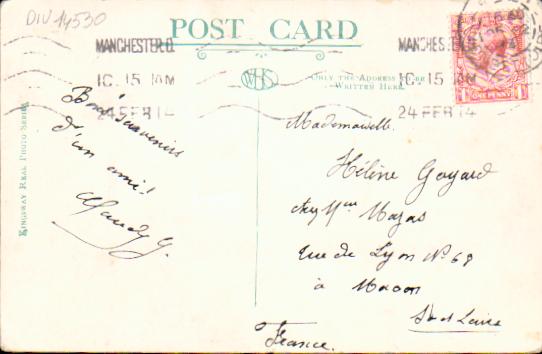 DIV 14530
POST CARD
MANCHESTER.
10.15 AM
24 FEB 14
MANCHES
10.15 AM
24 FEB 14
WHS
ONLY THE ADDRESS
WRITTEN HERE.
ONE PENNY
KINGSWAY REAL PHOTO SERIES
Bons souvenirs
d'un ami!
G.
Mademoiselle
Hélène Goyard
chez Mme Mazas
rue de Lyon No 68
à Macon
S et Loire
France.